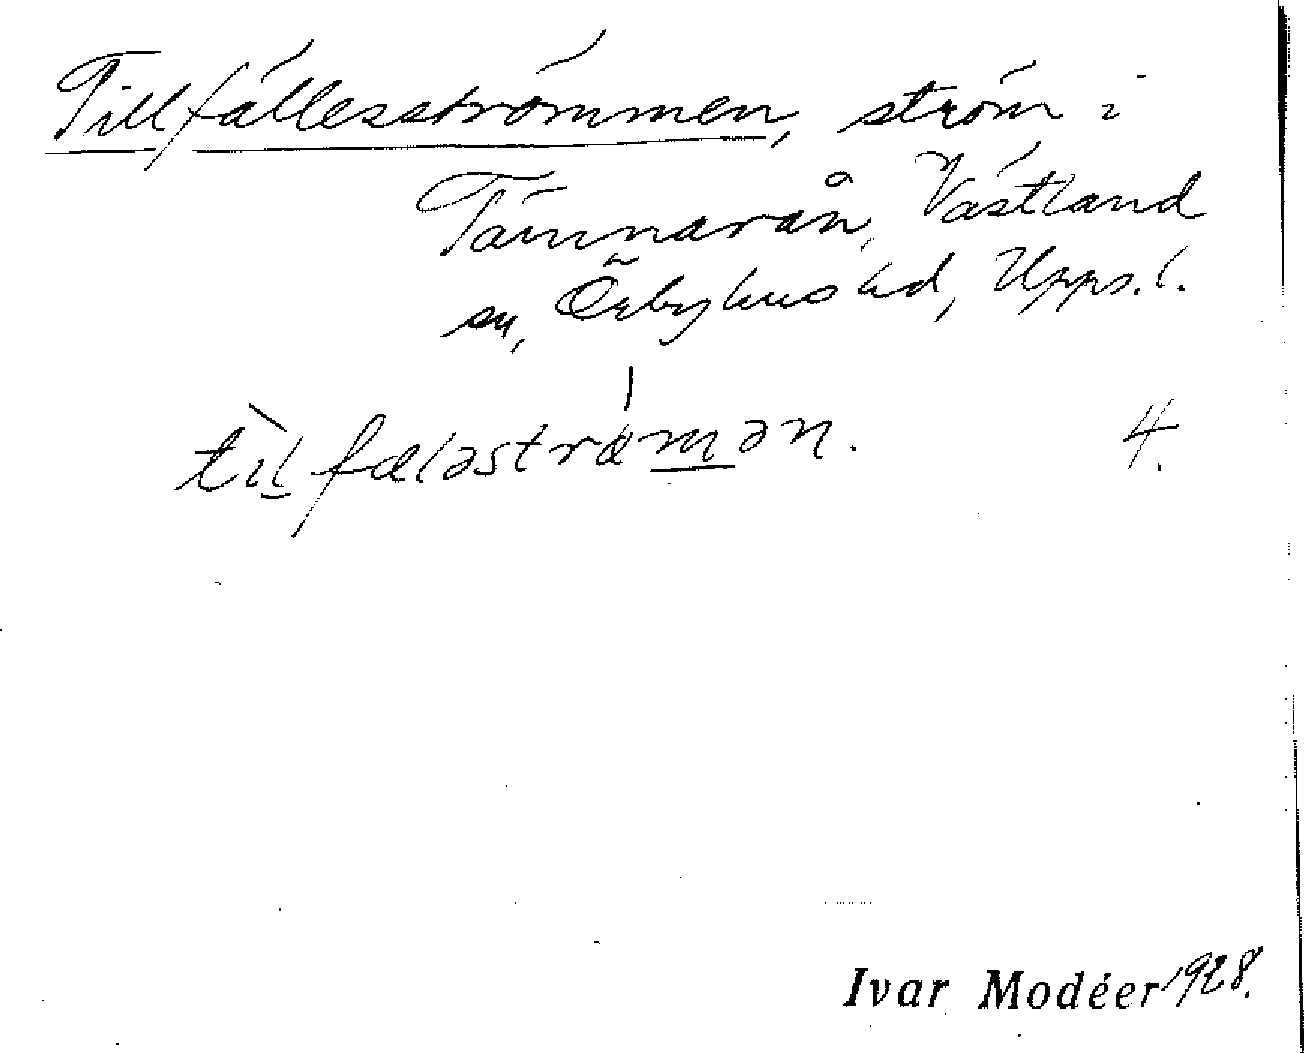 Tillfällesströmmen, ström i
Tämnarån, Västland
sn, Örbyhus hd, Upps. l.
tìlfæləstrǿmən. 4.
Ivar Modéer 1928.